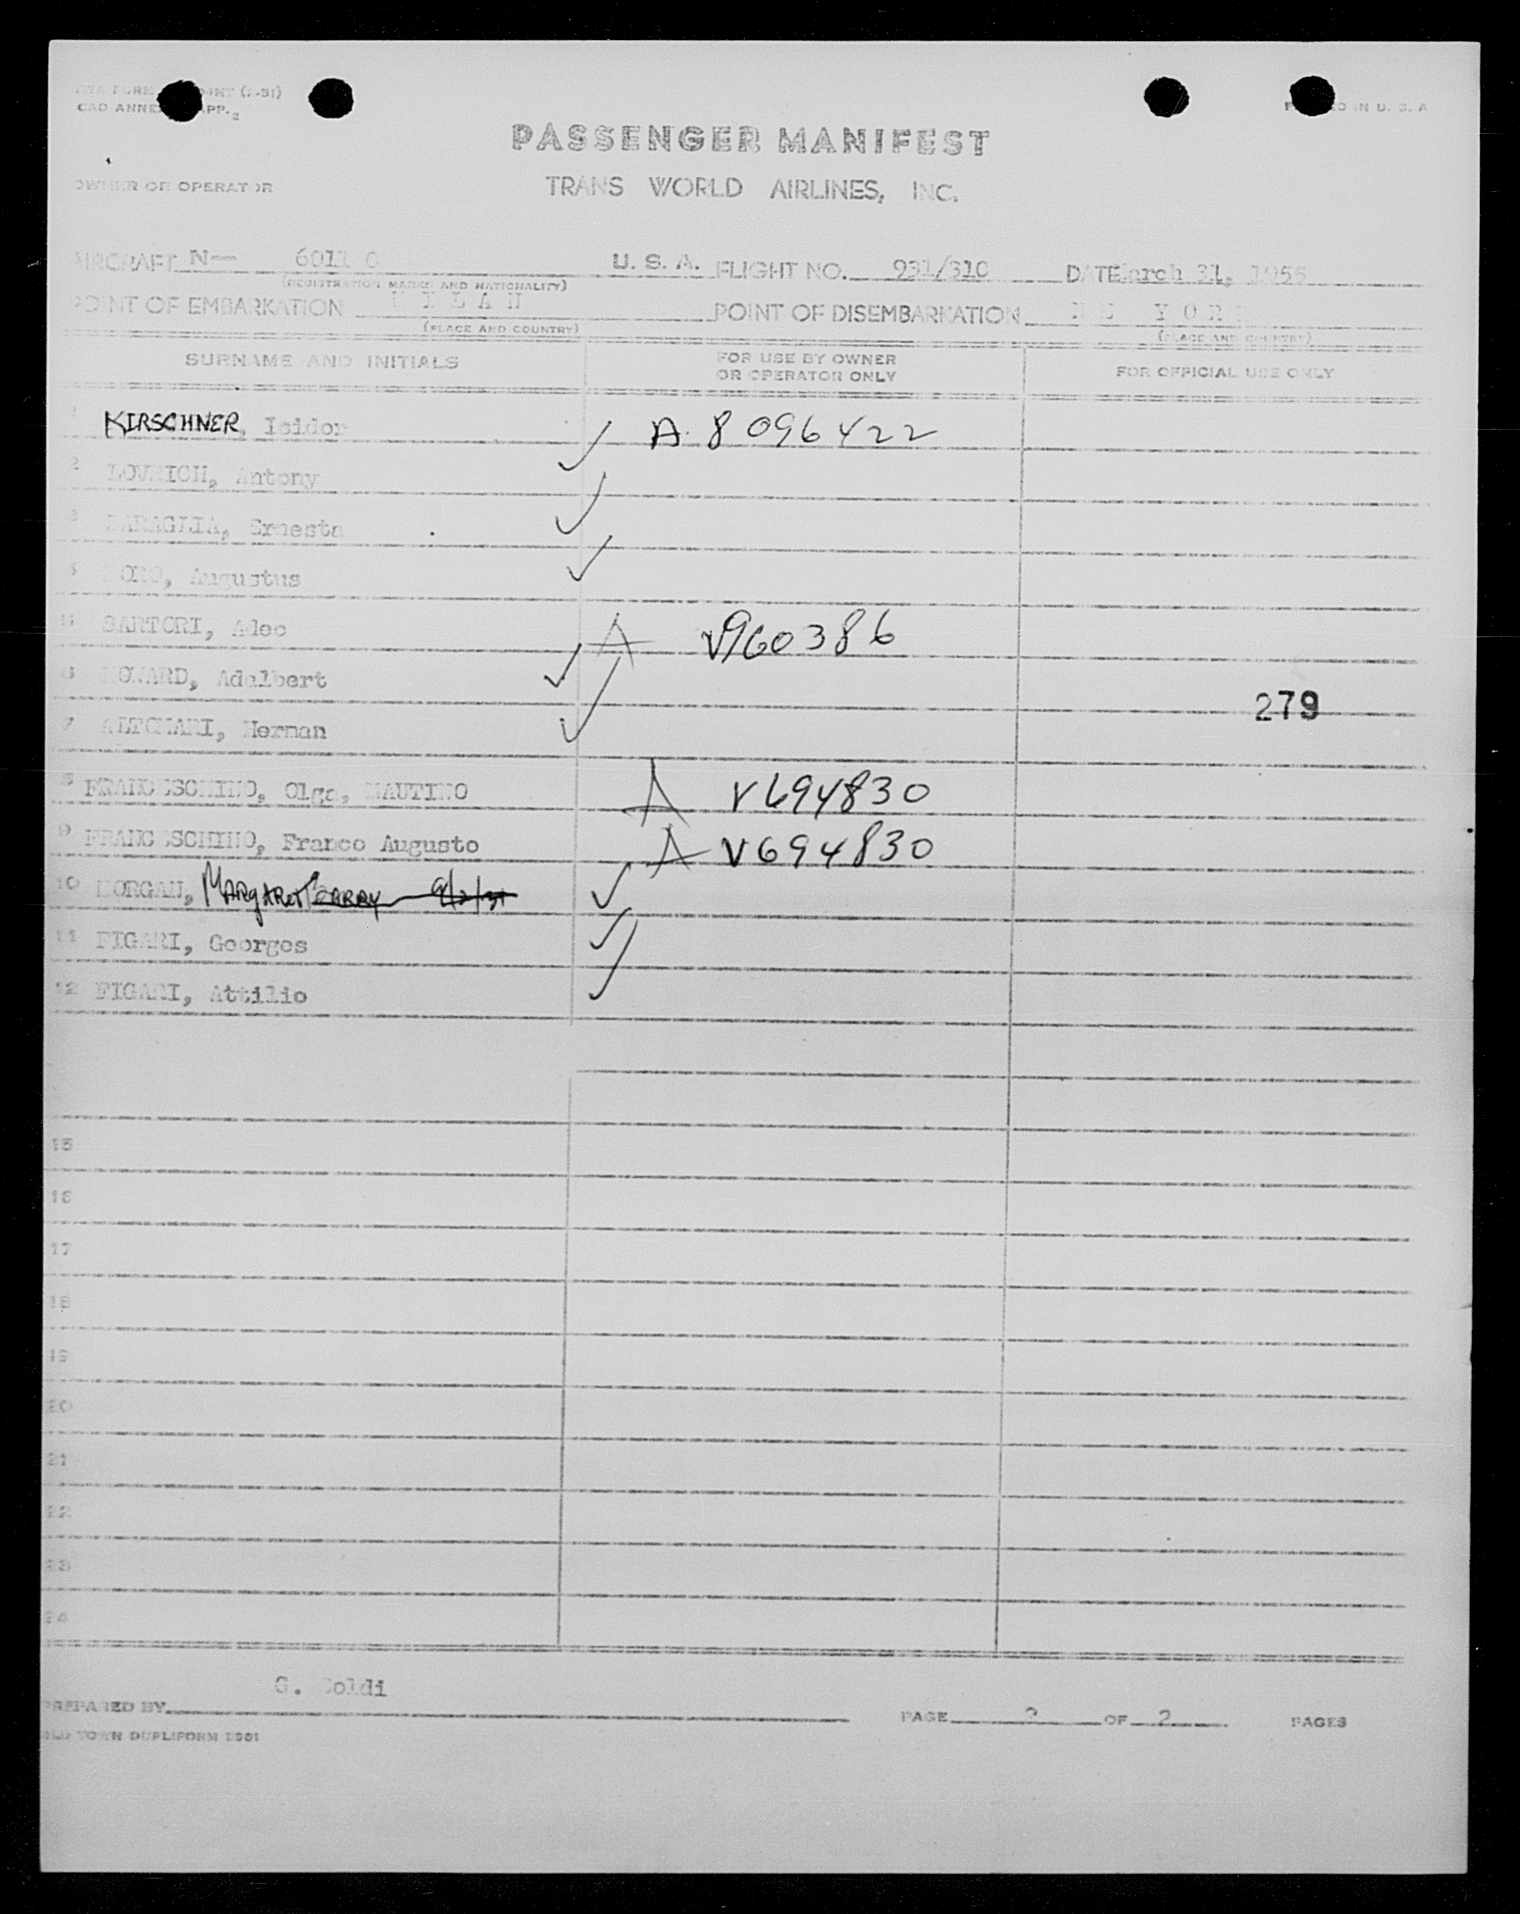 PRINTED IN U. S. A
CAO ANNEX APP. 2
PASSENGER MANIFEST
OWNER OR OPERATOR
TRANS WORLD AIRLINES, INC.
AIRCRAFT N— 6011 C U. S. A. FLIGHT NO. 931/310 DATE March 31, 1955
(REGISTRATION MARKS AND NATIONALITY)
POINT OF EMBARKATION MILAN POINT OF DISEMBARKATION NEW YORK
(PLACE AND COUNTRY) (PLACE AND COUNTRY)
SURNAME AND INITIALS FOR USE BY OWNER OR OPERATOR ONLY FOR OFFICIAL USE ONLY
1 KIRSCHNER, Isidor ✓ A 8 096 422
2 LOVRICH, Antony ✓
3 Ernesta ✓
4 Augustus
5 SARTORI, Alec A V960386
6 Adelbert ✓
279
7 ALTOMARI, Herman ✓
8 FRANCESCHINO, Olga, MAUTINO A V694830
9 FRANCESCHINO, Franco Augusto A V694830
10 MORGAN, MARGARET ✓
11 FIGARI, Georges ✓
12 FIGARI, Attilio ✓
15
16
17
18
19
20
21
22
23
24
PREPARED BY G. PAGE 2 OF 2 PAGES
OLD TOWN DUPLIFORM